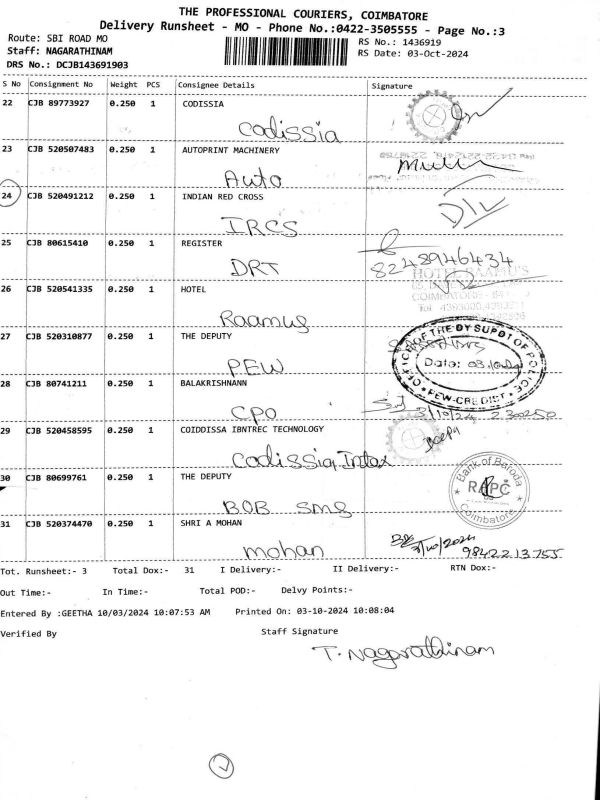 THE PROFESSIONAL COURIERS, COIMBATORE
Delivery Runsheet - MO - Phone No.:0422-3505555 - Page No.:3
Route: SBI ROAD MO
RS No.: 1436919
Staff: NAGARATHINAM
RS Date: 03-Oct-2024
DRS No.: DCJB143691903
S No Consignment No Weight PCS Consignee Details Signature
22 CJB 89773927 0.250 1 CODISSIA
Codissia
23 CJB 520507483 0.250 1 AUTOPRINT MACHINERY
Auto
24 CJB 520491212 0.250 1 INDIAN RED CROSS
IRCS
25 CJB 80615410 0.250 1 REGISTER
DRT 8248946434
HOTEL RAAMU'S
26 CJB 520541335 0.250 1 HOTEL
Raamus
27 CJB 520310877 0.250 1 THE DEPUTY
OFFICE OF THE DY SUPDT OF POLICE
Date:
PEW
28 CJB 80741211 0.250 1 BALAKRISHNANN
CPO 3/10/24 230250
29 CJB 520458595 0.250 1 COIDDISSA IBNTREC TECHNOLOGY
Codissia Intax
30 CJB 80699761 0.250 1 THE DEPUTY
Bank of Baroda
Coimbatore
BOB SMS
31 CJB 520374470 0.250 1 SHRI A MOHAN
mohan 3/10/2024 9842213755
Tot. Runsheet:- 3 Total Dox:- 31 I Delivery:- II Delivery:- RTN Dox:-
Out Time:- In Time:- Total POD:- Delvy Points:-
Entered By :GEETHA 10/03/2024 10:07:53 AM Printed On: 03-10-2024 10:08:04
Verified By Staff Signature
T. Nagarathinam